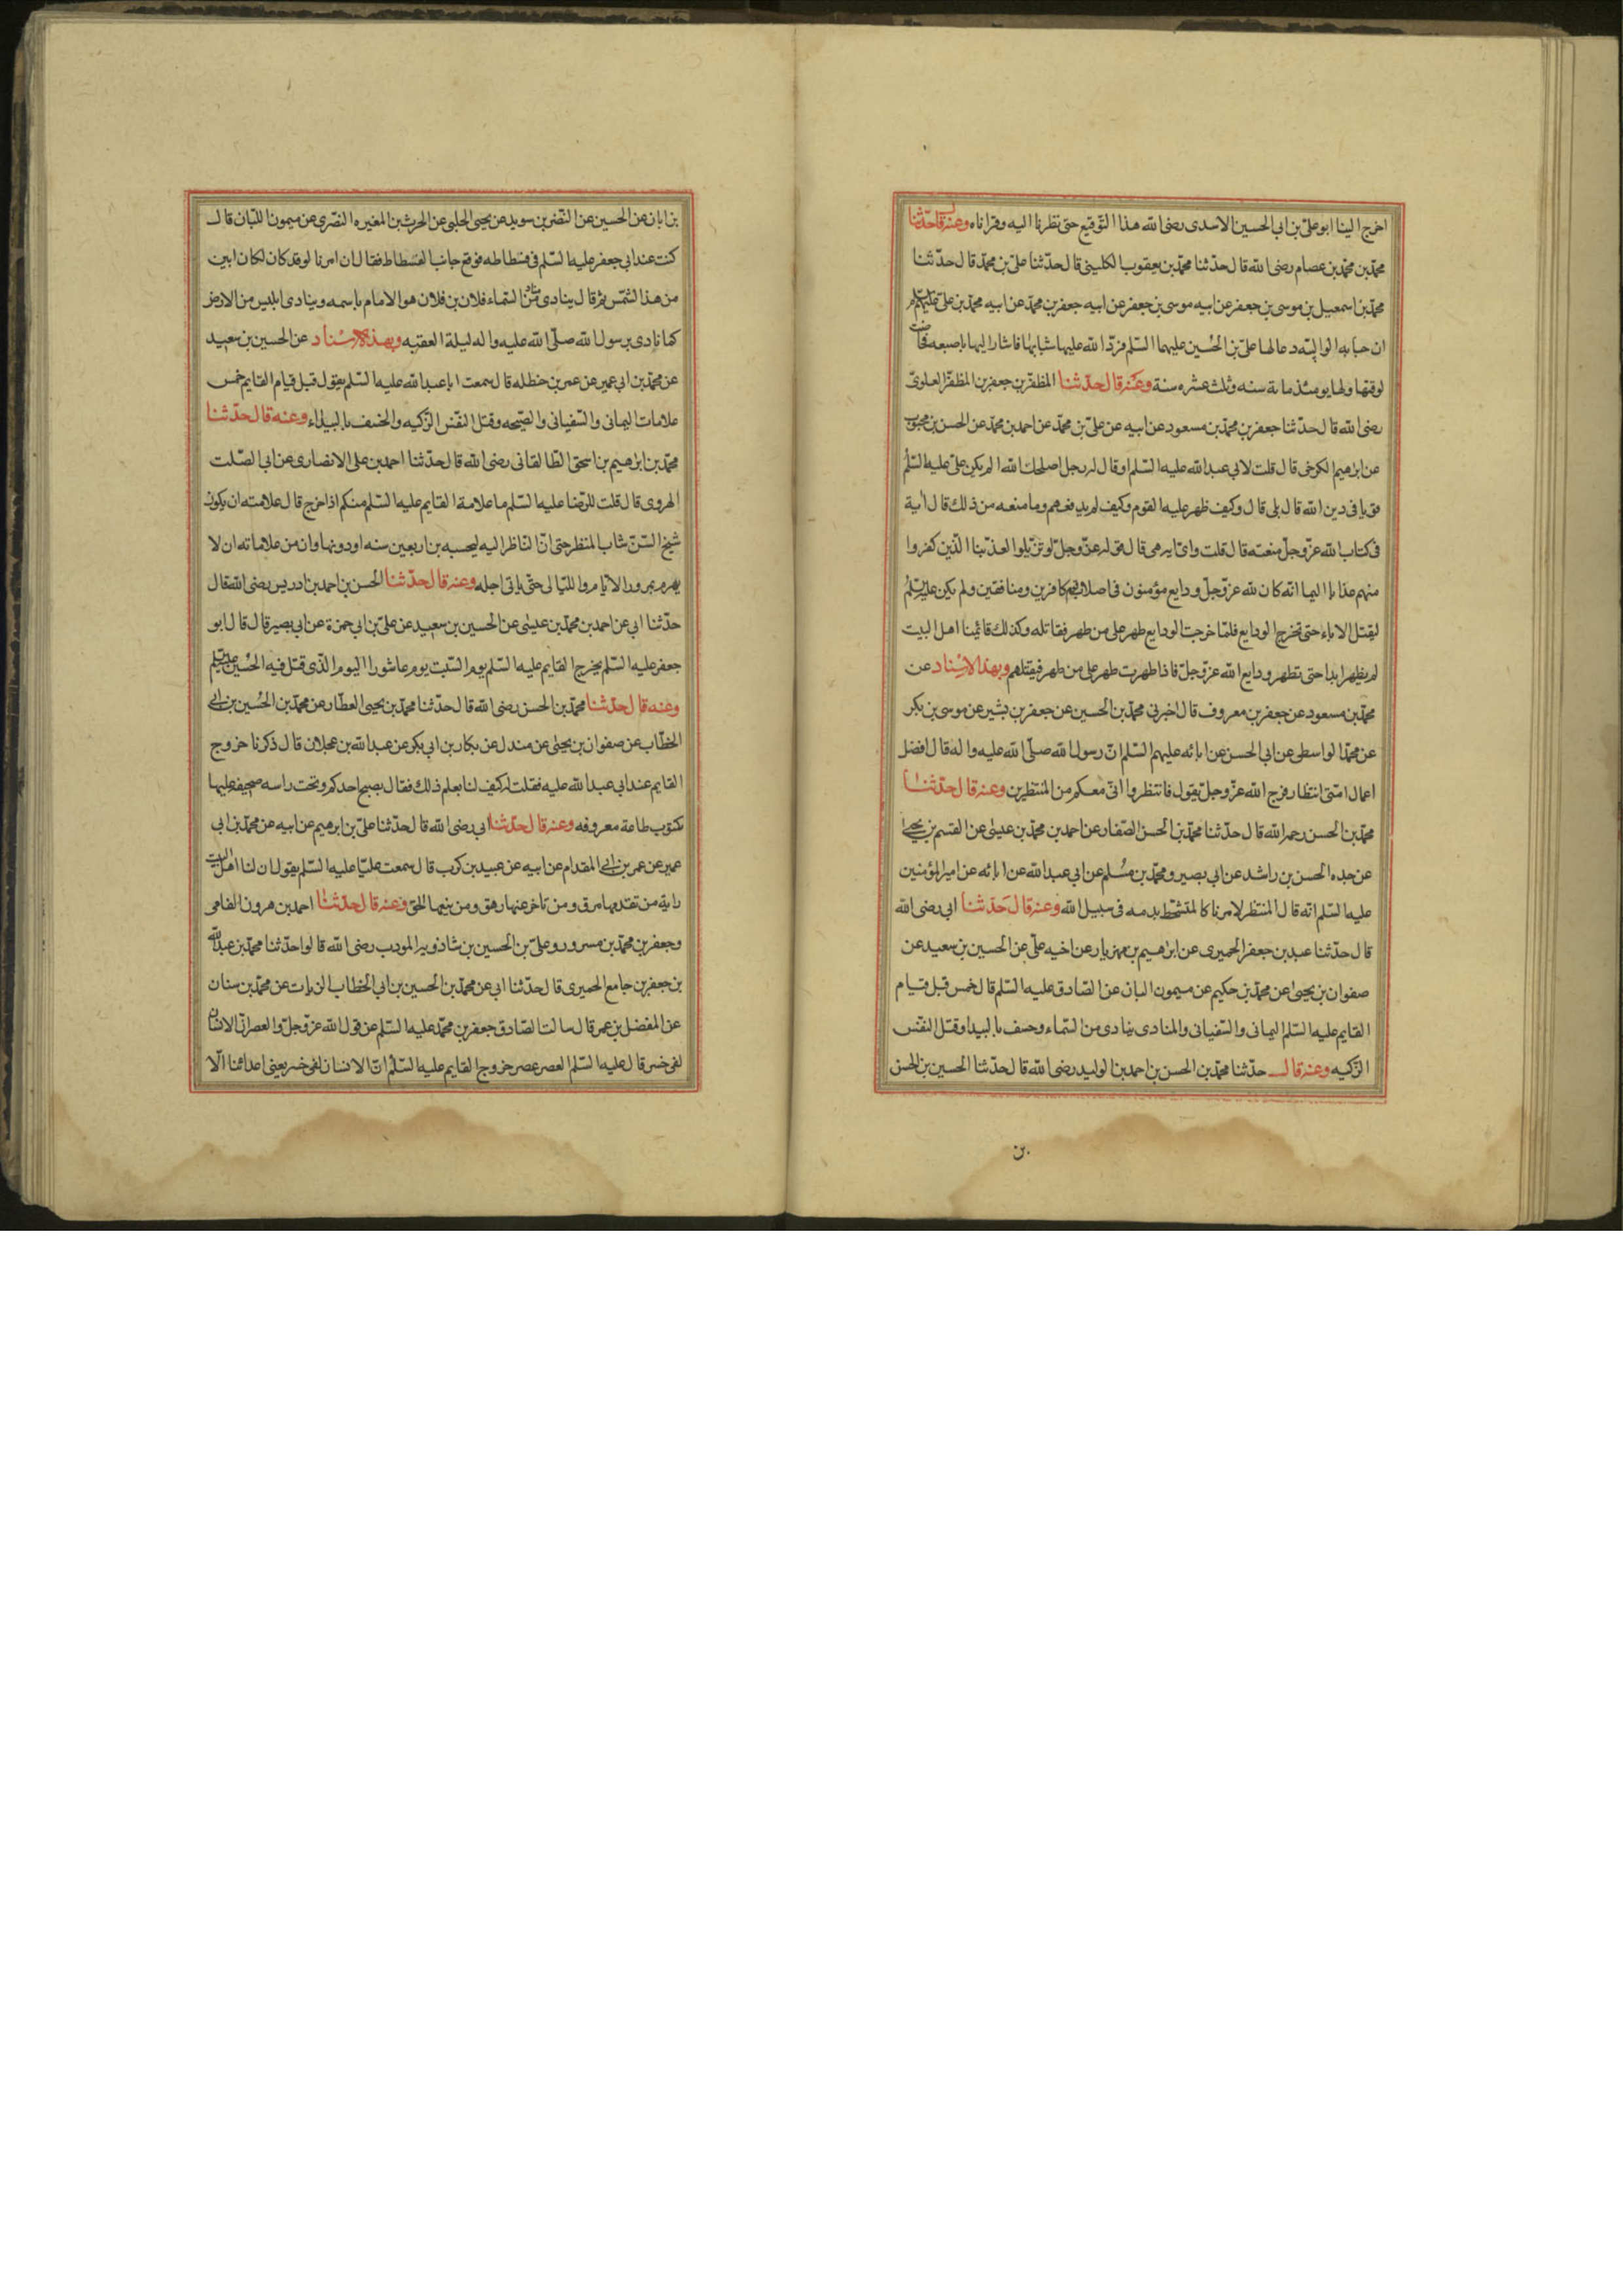 اخرج الينا ابو على بن ابى الحسين الاسدى رضى الله هذا التوقيع حتى نظرنا اليه وقراناه وعنه قال حدّثنا
محمّد بن محمّد بن عصام رضى الله قال حدّثنا محمّد بن يعقوب الكلينى قال حدّثنا علىّ بن محمّد قال حدّثنا
محمّد بن اسمعيل بن موسى بن جعفر عن ابيه موسى بن جعفر عن ابيه جعفر بن محمّد عن ابيه محمّد بن علىّ عليهم السّلم
ان حبابه الوالبيّه دعا لها علىّ بن الحُسين عليهما السّلم فردّ الله عليها شبابها فاشار اليها باصبعه فحاضت
لوقتها ولها يومئذ ماية سنه وثلث عشره سنة وعنه قال حدّثنا المظفّر بن جعفر بن المظفّر العلوىّ
رضى الله قال حدّثنا جعفر بن محمّد بن مسعود عن ابيه عن علىّ بن محمّد عن احمد بن محمّد عن الحسن بن محبوب
عن ابرهيم الكرخى قال قلت لابى عبد الله عليه السّلم او قال له رجل اصلحك الله الم يكن علىّ عليه السّلم
قويا فى دين الله قال بلى قال وكيف ظهر عليه القوم وكيف لم يدفعهم وما منعه من ذلك قال اية
فى كتاب الله عزّ وجلّ منعته قال قلت واىّ ايه هى قال قوله عزّ وجلّ لو تزيّلوا لعذّبنا الّذين كفروا
منهم عذابا اليما انّه كان لله عزّ وجلّ ودايع مؤمنون فى اصلاب قوم كافرين ومنافقين ولم يكن علىّ عليه السّلم
ليقتل الاباء حتى تخرج الودايع فلمّا خرجت الودايع ظهر على من ظهر فقاتله وكذلك قائمنا اهل البيت
لم يظهر ابدا حتى تظهر ودايع الله عزّ وجلّ فاذا ظهرت ظهر على من ظهر فيقتلهم وبهذا الاسناد عن
محمّد بن مسعود عن جعفر بن معروف قال اخبرنى محمّد بن الحسين عن جعفر بن بشير عن موسى بن بكر
عن محمّد الواسطى عن ابى الحسن عن ابائه عليهم السّلم انّ رسول الله صلّى الله عليه واله قال افضل
اعمال امّتى انتظار فرج الله عزّ وجلّ يقول فانتظروا انّى معكم من المنتظرين وعنه قال حدّثنا
محمّد بن الحسن رحمه الله قال حدّثنا محمّد بن الحسن الصّفار عن احمد بن محمّد بن عيسى عن القسم بن يحيى
عن جده الحسن بن راشد عن ابى بصير ومحمّد بن مُسلم عن ابى عبد الله عن ابائه عن امير المؤمنين
عليه السّلم انّه قال المنتظر لامرنا كالمتشحّط بدمه فى سبيل الله وعنه قال حَدّثنا ابى رضى الله
قال حدّثنا عبد بن جعفر الحميرى عن ابرهيم بن مهزيار عن اخيه علىّ عن الحسين بن سعيد عن
صفوان بن يحيى عن محمّد بن حكيم عن ميمون البان عن الصّادق عليه السّلم قال خمس قبل قيام
القايم عليه السّلم اليمانى والسّفيانى والمنادى ينادى من السّماء وخسف بالبيدا وقتل النفس
الزكيه وعنه قال حدّثنا محمّد بن الحسن بن احمد بن الوليد رضى الله قال حدّثنا الحسين بن الحسن
بن
بن ابان عن الحسين عن النضر بن سويد عن يحيى الحلبى عن الحرث بن المغيره النصرى عن ميمون اللبّان قال
كنت عند ابى جعفر عليه السّلم فى فسطاطه فرفع جانب الفسطاط فقال ان امرنا لو قد كان لكان ابين
من هذا الشّمس ثم قال ينادى مناد من السّماء فلان بن فلان هو الامام باسمه وينادى ابليس من الارض
كما نادى برسول الله صلّى الله عليه واله ليلة العقبه وبهذا الاسناد عن الحسين بن سعيد
عن محمّد بن ابى عمير عن عمر بن حنظله قال سمعت ابا عبد الله عليه السّلم يقول قبل قيام القايم خمس
علامات اليمانى والسّفيانى والصّيحه وقتل النفس الزّكيه والخسف بالبيداء وعنه قال حدّثنا
محمّد بن ابرهيم بن اسحق الطّالقانى رضى الله قال حدّثنا احمد بن على الانصارى عن ابى الصّلت
الهروى قال قلت للرّضا عليه السّلم ما علامة القايم عليه السّلم منكم اذا خرج قال علامته ان يكون
شيخ السّنّ شاب المنظر حتى انّ النّاظر اليه ليحسبه بن اربعين سنه او دونها وان من علاماته ان لا
يهرم بمرور الايّام والليّالى حتّى ياتى اجله وعنه قال حدّثنا الحسن بن احمد بن ادريس رضى الله قال
حدّثنا ابى عن احمد بن محمّد بن عيسى عن الحسين بن سعيد عن علىّ بن ابى حمزة عن ابى بصير قال قال ابو
جعفر عليه السّلم يخرج القايم عليه السّلم يوم السّبت يوم عاشورا اليوم الّذى قتل فيه الحُسين عليه السّلم
وعنه قال حدّثنا محمّد بن الحسن رضى الله قال حدّثنا محمّد بن يحيى العطّار عن محمّد بن الحُسين بن ابى
الخطّاب عن صفوان بن يحيى عن مندل عن بكار بن ابى بكر عن عبد الله بن عجلان قال ذكرنا خروج
القايم عند ابى عبد الله عليه فقلت له كيف لنا بعلم ذلك فقال يصبح احدكم وتحت راسه صحيفه عليها
مكتوب طاعة معروفه وعنه قال حدّثنا ابى رضى الله قال حدّثنا علىّ بن ابرهيم عن ابيه عن محمّد بن ابى
عمير عن عمر بن ابى المقدام عن ابيه عن عبيد بن كرب قال سمعت عليّا عليه السّلم يقول ان لنا اهل البيت
راية من تقدمها مرق ومن تاخر عنها زهق ومن تبعها لحق وعنه قال حدّثنا احمد بن هرون الفامى
وجعفر بن محمّد بن مسرور وعلىّ بن الحسين بن شاذويه المودب رضى الله قالوا حدّثنا محمّد بن عبد الله
بن جعفر بن جامع الحميرى قال حدّثنا ابى عن محمّد بن الحسين بن ابى الخطاب الزيات عن محمّد بن سنان
عن المفضل بن عمر قال سالت الصّادق جعفر بن محمّد عليه السّلم عن قول الله عزّ وجلّ والعصر انّ الانسان
لفى خسر قال عليه السّلم العصر عصر خروج القايم عليه السّلم انّ الانسان لفى خسر يعنى اعدائنا الّا